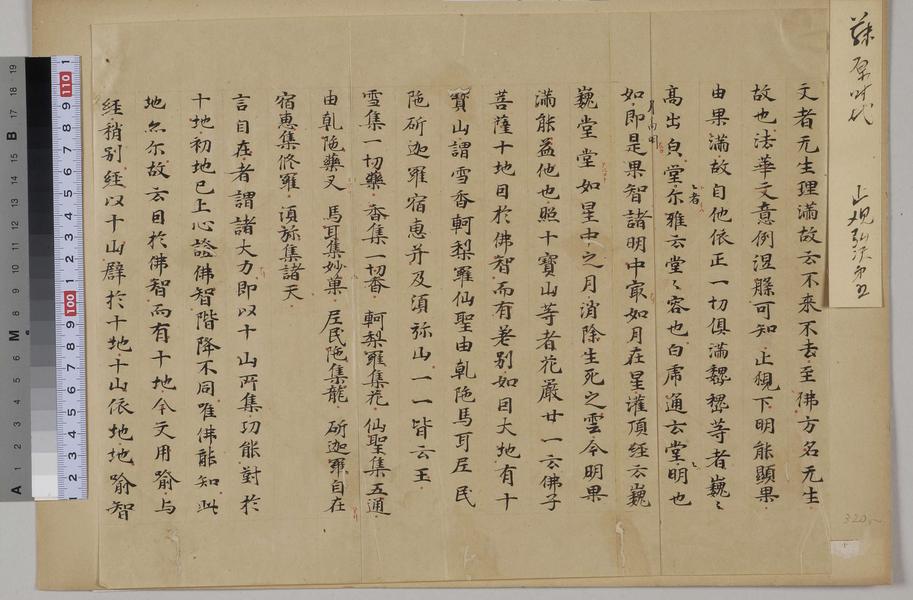 鎌倉時代 止観弘決第五
文者无生理滿故云不來不去至佛方名无生
故也法華文意例涅槃可知止觀下明能顯果
由果滿故自他依正一切俱滿魏魏等者巍〻
高出白堂尓雅云堂〻容也白虎通云堂明也
如即是果智諸明中冣如月在星灌頂經云巍
巍堂堂如星中之月消除生死之雲今明果
滿能益他也照十寶山等者花嚴廿一云佛子
菩薩十地因於佛智而有差別如因大地有十
寶山謂雪香軻梨羅仙聖由乹陁馬耳居民
陁斫迦羅宿惠并及湏弥山一一皆云王
雪集一切藥香集一切香軻梨羅集花仙聖集五通
由乹陁藥叉馬耳集妙菓居民陁集龍斫迦羅自在
宿惠集脩羅湏弥集諸天
言自在者謂諸大力即以十山所集功能對於
十地初地已上心證佛智階降不同唯佛能知此
地忽尓故云因於佛智而有十地今文用喻与
經稍別經以十山辟於十地十山依地地喻智
320